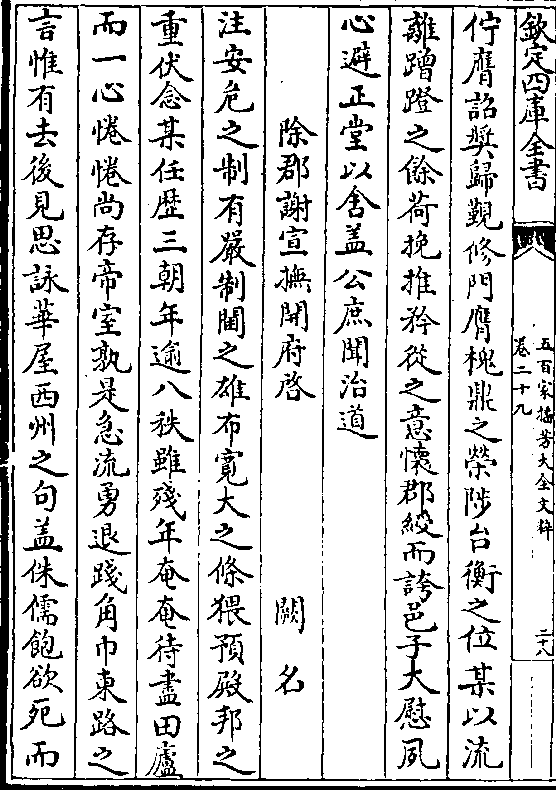 欽定四庫全書
五百家播芳大全文粹
卷二十九
二十八
佇膺詔奬歸覲修門膺槐鼎之榮陟台衡之位某以流
離蹭蹬之餘荷挽推矜從之意懷郡綬而誇邑子大慰夙
心避正堂以舍盖公庶聞治道
除郡謝宣撫開府啓　闕名
注安危之制有嚴制閫之雄布寛大之條猥預殿邦之
重伏念某任歴三朝年逾八秩雖殘年奄奄待盡田廬
而一心惓惓尚存帝室孰是急流勇退踐角巾東路之
言惟有去後見思詠華屋西州之句盖侏儒飽欲死而